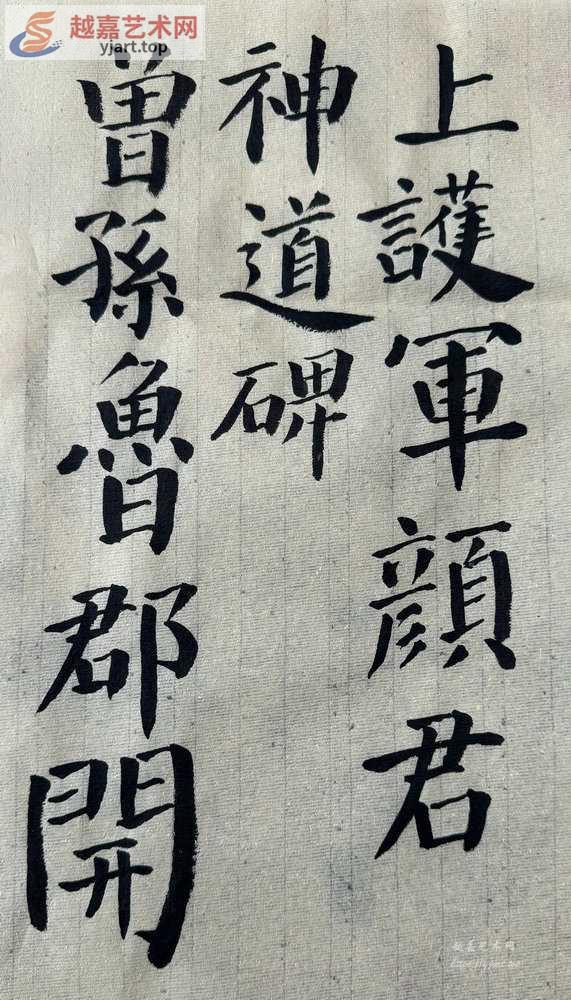 越嘉艺术网
yjart.top
上護軍顔君
神道碑
曽孫魯郡開
越嘉艺术网